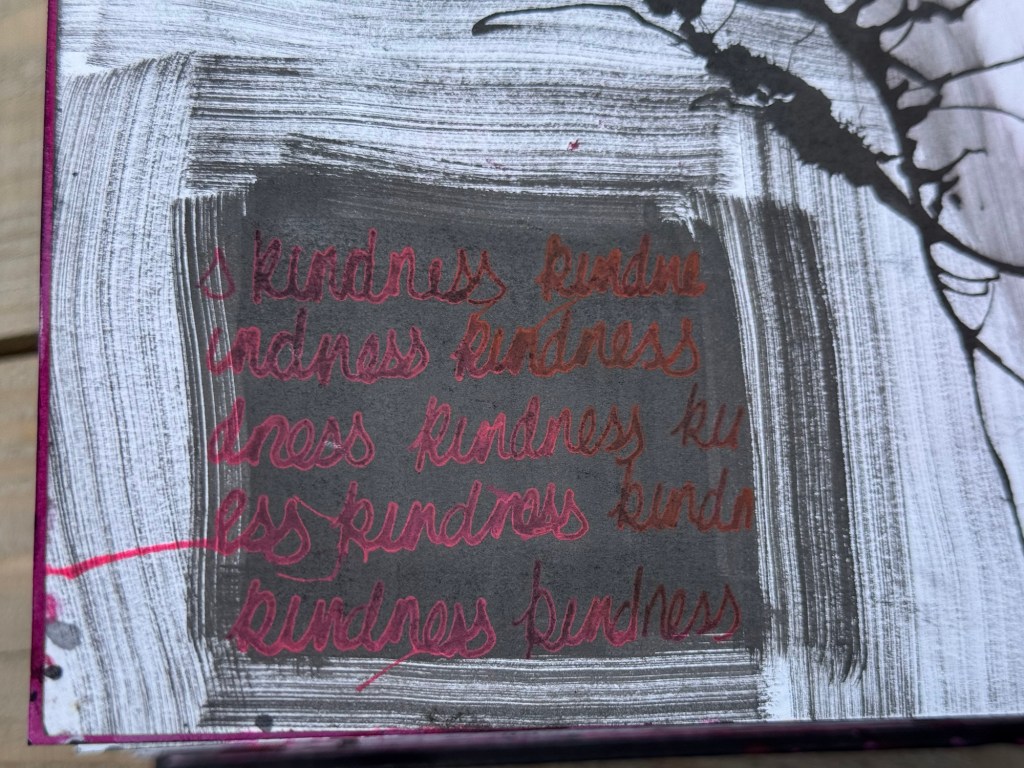 s kindness kindne
indness kindness
dness kindness ki
ess kindness kindn
kindness kindness